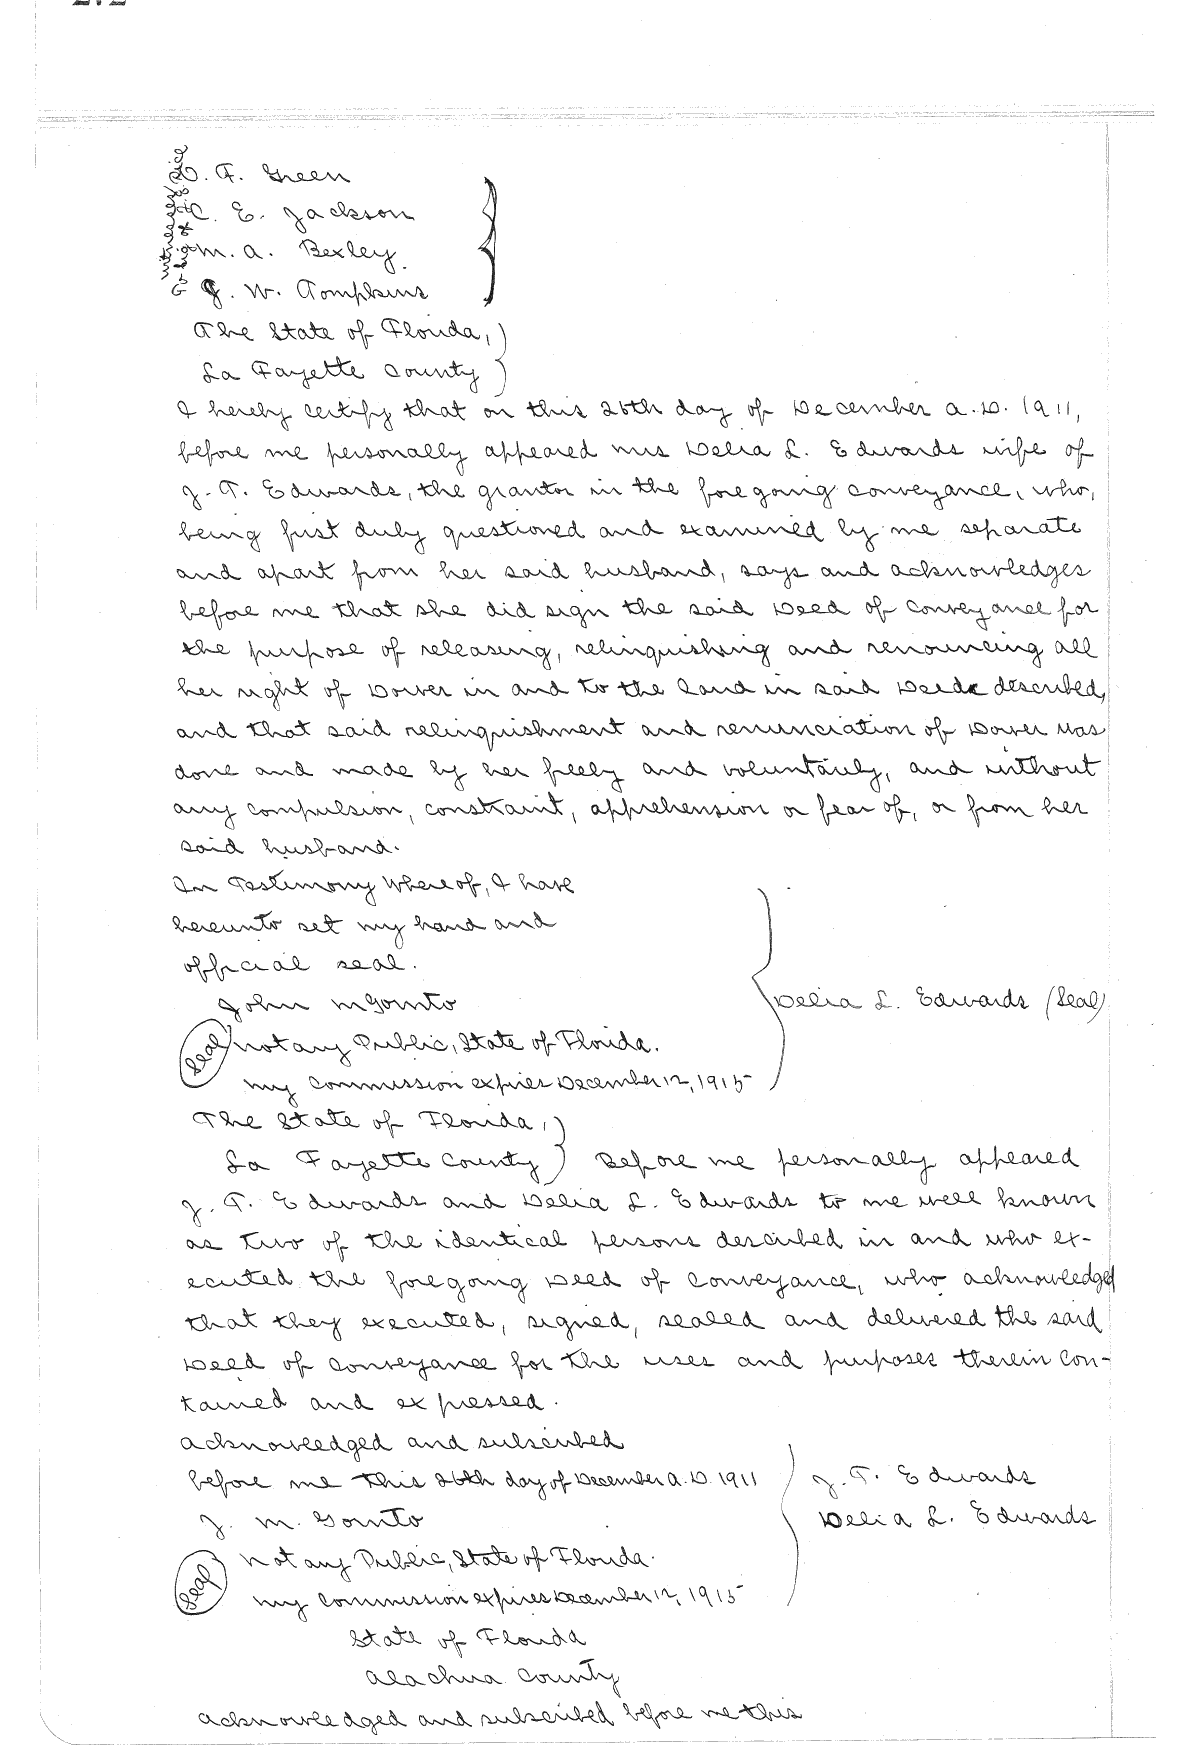 D. F. Green
C. E. Jackson
M. A. Bexley
J. W. Tompkins
The State of Florida,
La Fayette County
I hereby certify that on this 26th day of December A.D. 1911,
before me personally appeared Mrs Delia L. Edwards wife of
J. T. Edwards, the grantor in the foregoing conveyance, who,
being first duly questioned and examined by me separate
and apart from her said husband, says and acknowledges
before me that she did sign the said Deed of Conveyance for
the purpose of releasing, relinquishing and renouncing all
her right of Dower in and to the Land in said Deed described,
and that said relinquishment and renunciation of Dower was
done and made by her freely and voluntarily, and without
any compulsion, constraint, apprehension or fear of, or from her
said husband.
In Testimony Whereof, I have
hereunto set my hand and
official seal.
John M Gornto
Delia L. Edwards (Seal)
(Seal) Notary Public, State of Florida.
My Commission expires December 12, 1915
The State of Florida,
La Fayette County Before me personally appeared
J. T. Edwards and Delia L. Edwards to me well known
as two of the identical persons described in and who ex-
ecuted the foregoing Deed of Conveyance, who acknowledged
that they executed, signed, sealed and delivered the said
Deed of Conveyance for the uses and purposes therein con-
tained and expressed.
Acknowledged and subscribed
before me this 26th day of December A.D. 1911 J. T. Edwards
J. M. Gornto Delia L. Edwards
(Seal) Notary Public, State of Florida.
My Commission expires December 12, 1915
State of Florida
Alachua County
Acknowledged and subscribed before me this